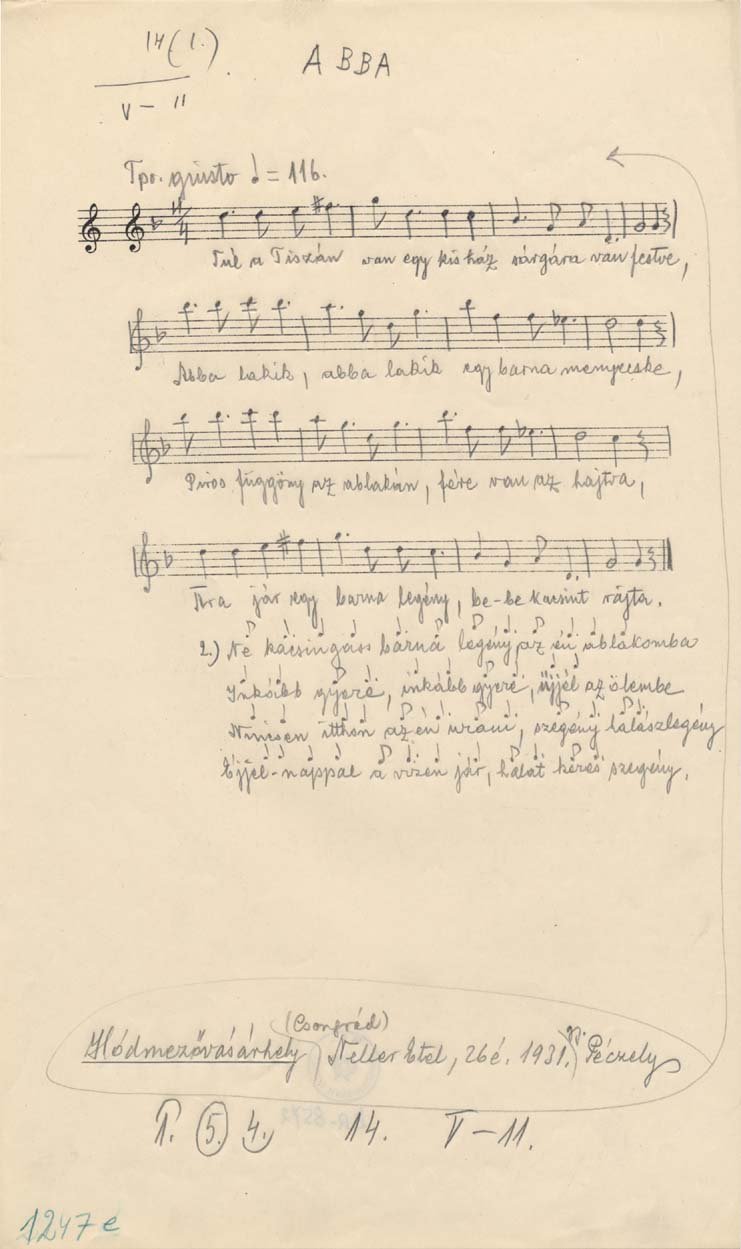 14(1.)
V – 11
ABBA
Tpo. giusto = 116.
4/4
Túl a Tiszán van egy kis ház sárgára van festve,
Abba lakik, abba lakik egy barna menyecske,
Piros függöny az ablakán, fére van az hajtva,
Arra jár egy barna legény, be-be kacsint rájta.
2.) Ne kacsingass barna legény az én ablakomba
Inkább gyere, inkább gyere, üjjél az ölembe
Nincsen itthon az én uram, szegény halászlegény
Éjjel-nappal a vizen jár, halat keres szegény.
(Csongrád)
Hódmezővásárhely, Neller Etel, 26 é. 1931. gy. Péczely
1. 5. 4. 14. V–11.
1247e